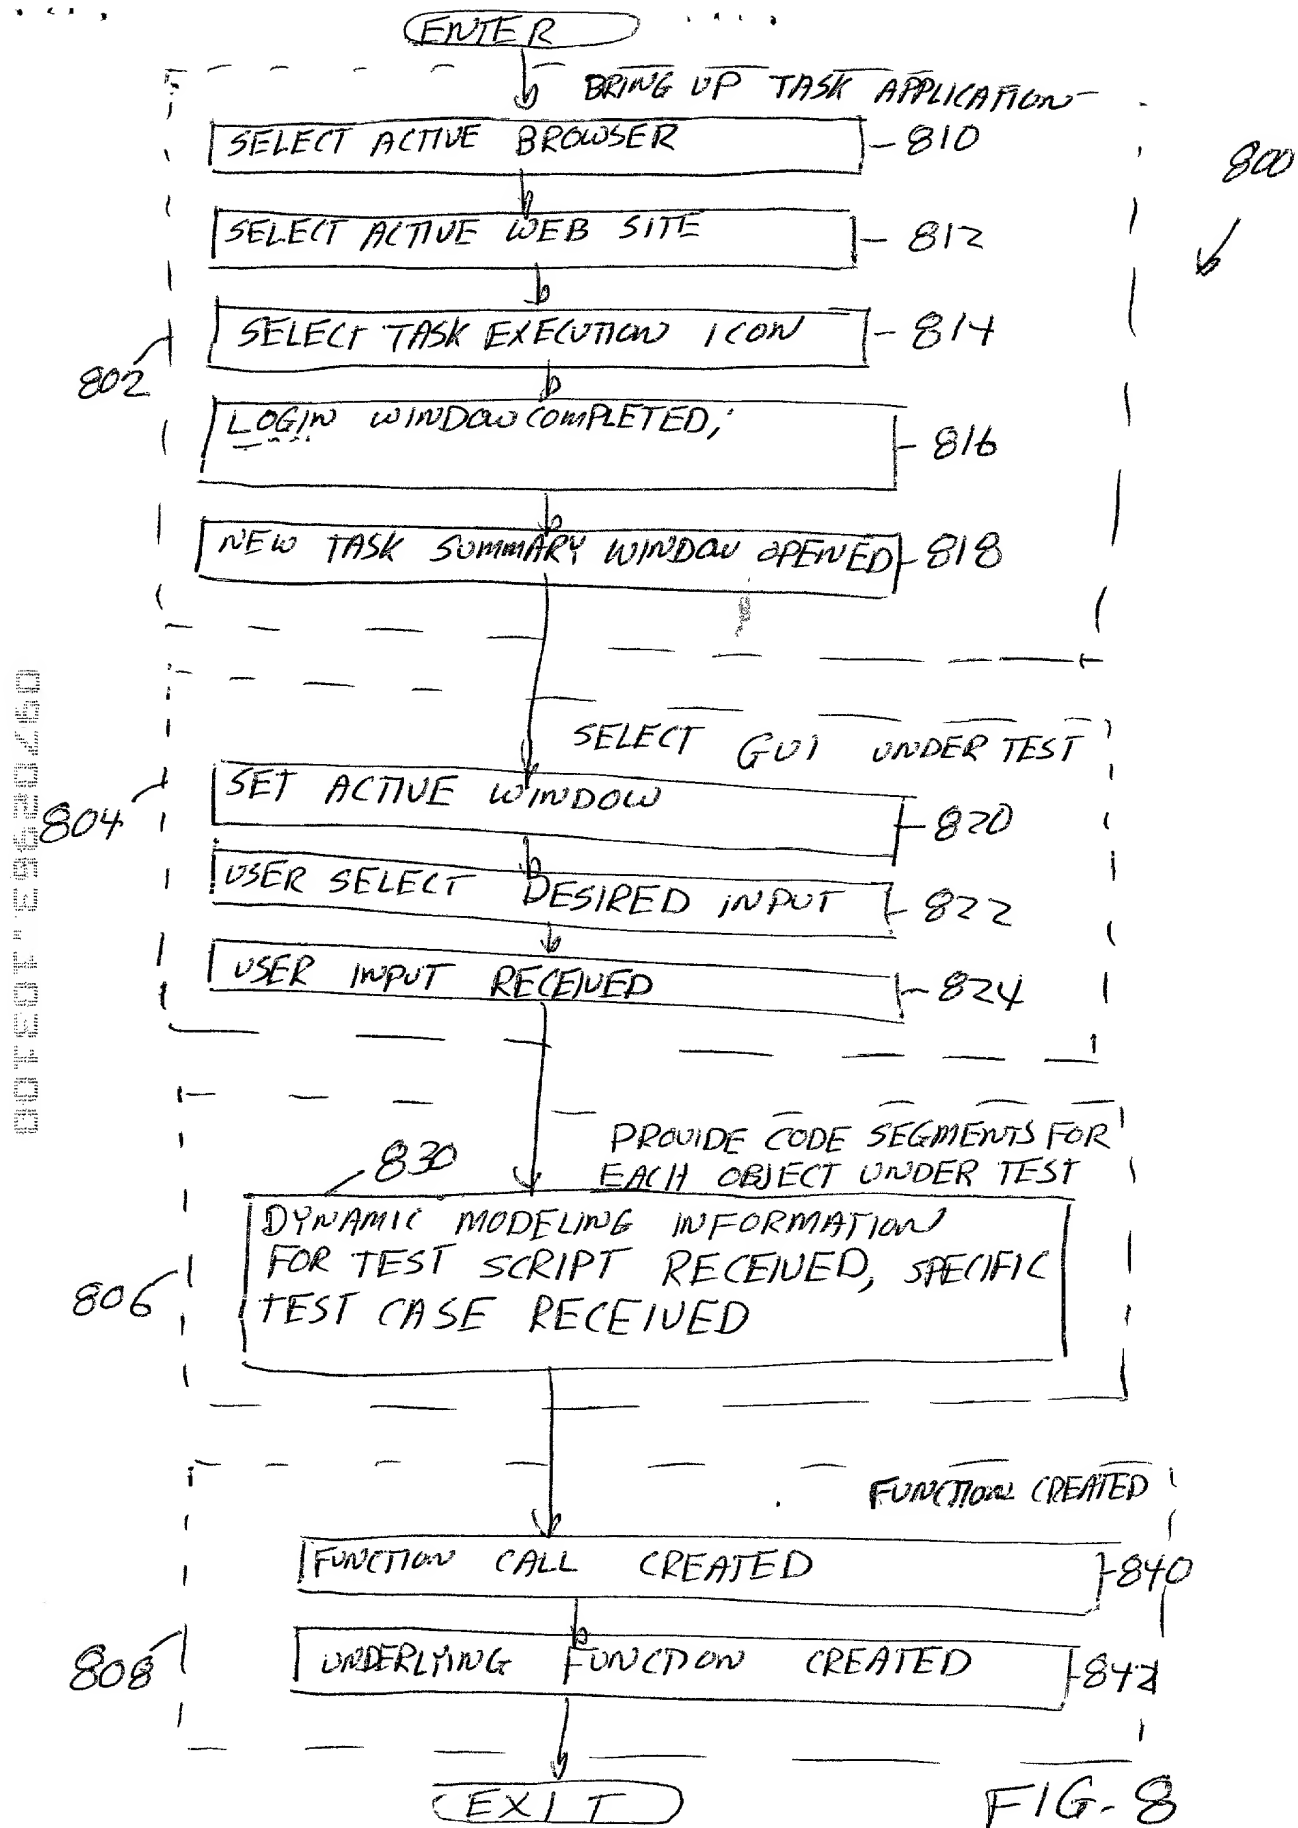 ENTER
BRING UP TASK APPLICATION
SELECT ACTIVE BROWSER
810
800
SELECT ACTIVE WEB SITE
812
SELECT TASK EXECUTION ICON
814
802
LOGIN WINDOW COMPLETED;
816
NEW TASK SUMMARY WINDOW OPENED
818
SELECT GUI UNDER TEST
SET ACTIVE WINDOW
820
804
USER SELECT DESIRED INPUT
822
USER INPUT RECEIVED
824
PROVIDE CODE SEGMENTS FOR
EACH OBJECT UNDER TEST
830
DYNAMIC MODELING INFORMATION
FOR TEST SCRIPT RECEIVED, SPECIFIC
TEST CASE RECEIVED
806
FUNCTION CREATED
FUNCTION CALL CREATED
840
UNDERLYING FUNCTION CREATED
808
EXIT
FIG. 8